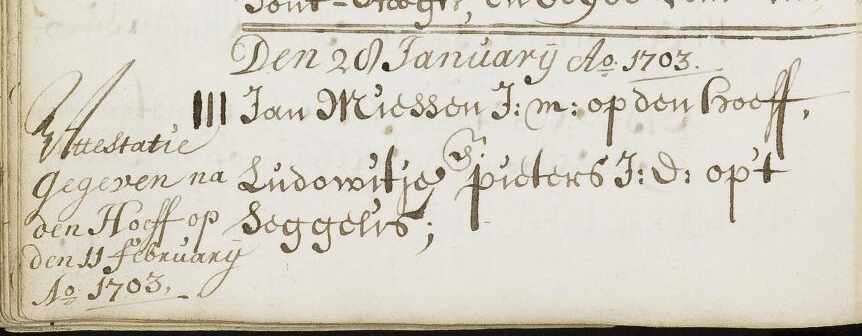 Den 28 January Ao. 1703.
III Jan Miessen J: m: op den hoeff,
Ludowitje pieters J: D: op't
Seggelis;
Attestatie
gegeven na
den Hoeff op
den 11 february
Ao 1703.